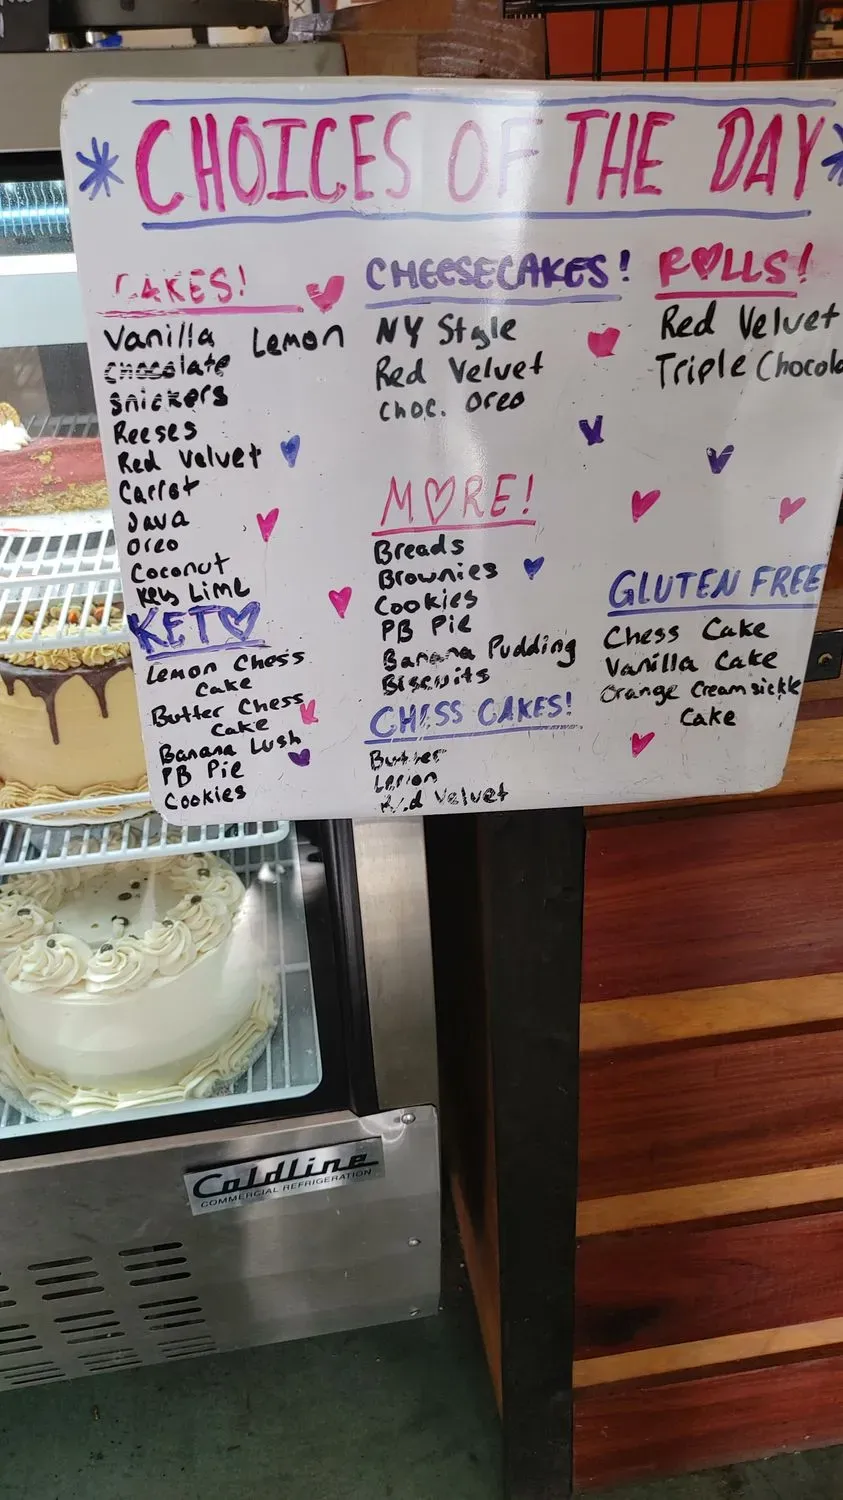 CHOICES OF THE DAY
CAKES!
Vanilla
Lemon
Chocolate
Snickers
Reeses
Red Velvet
Carrot
Java
Oreo
Coconut
Key Lime
KETO
Lemon Chess
Cake
Butter Chess
Cake
Banana Lush
PB Pie
Cookies
CHEESECAKES!
NY Style
Red Velvet
Choc. Oreo
MORE!
Breads
Brownies
Cookies
PB Pie
Banana Pudding
Biscuits
CHESS CAKES!
Butter
Lemon
Red Velvet
ROLLS!
Red Velvet
Triple Chocola
GLUTEN FREE
Chess Cake
Vanilla Cake
Orange Creamsickle
Cake
Coldline
COMMERCIAL REFRIGERATION